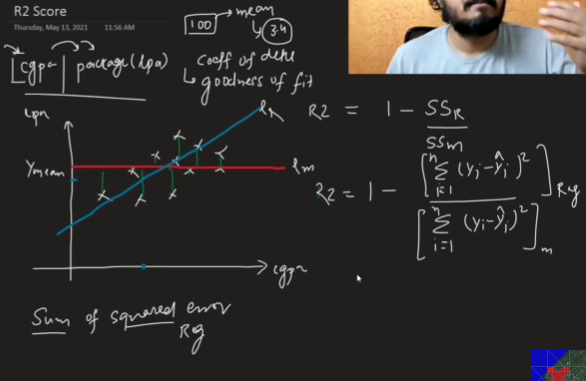 R2 Score
Thursday, May 13, 2021 11:56 AM
100 → mean
3.4
cgpa | package (lpa)
coeff of
goodness of fit
lpa
Ymean
lm
cgpa
R2 = 1 - SSR
SSm
R2 = 1 - [n Σ i=1 (yi-ŷi)²] Reg
[n Σ i=1 (yi-ŷi)²] m
Sum of squared error
Reg